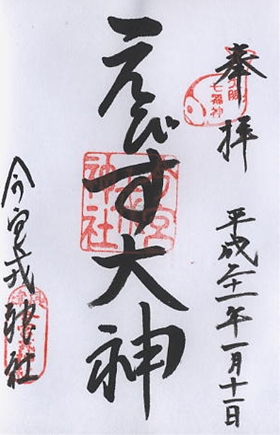 奉拝
平成二十一年一月十一日
えびす大神
今宮戎神社
大阪七福神
今宮戎神社